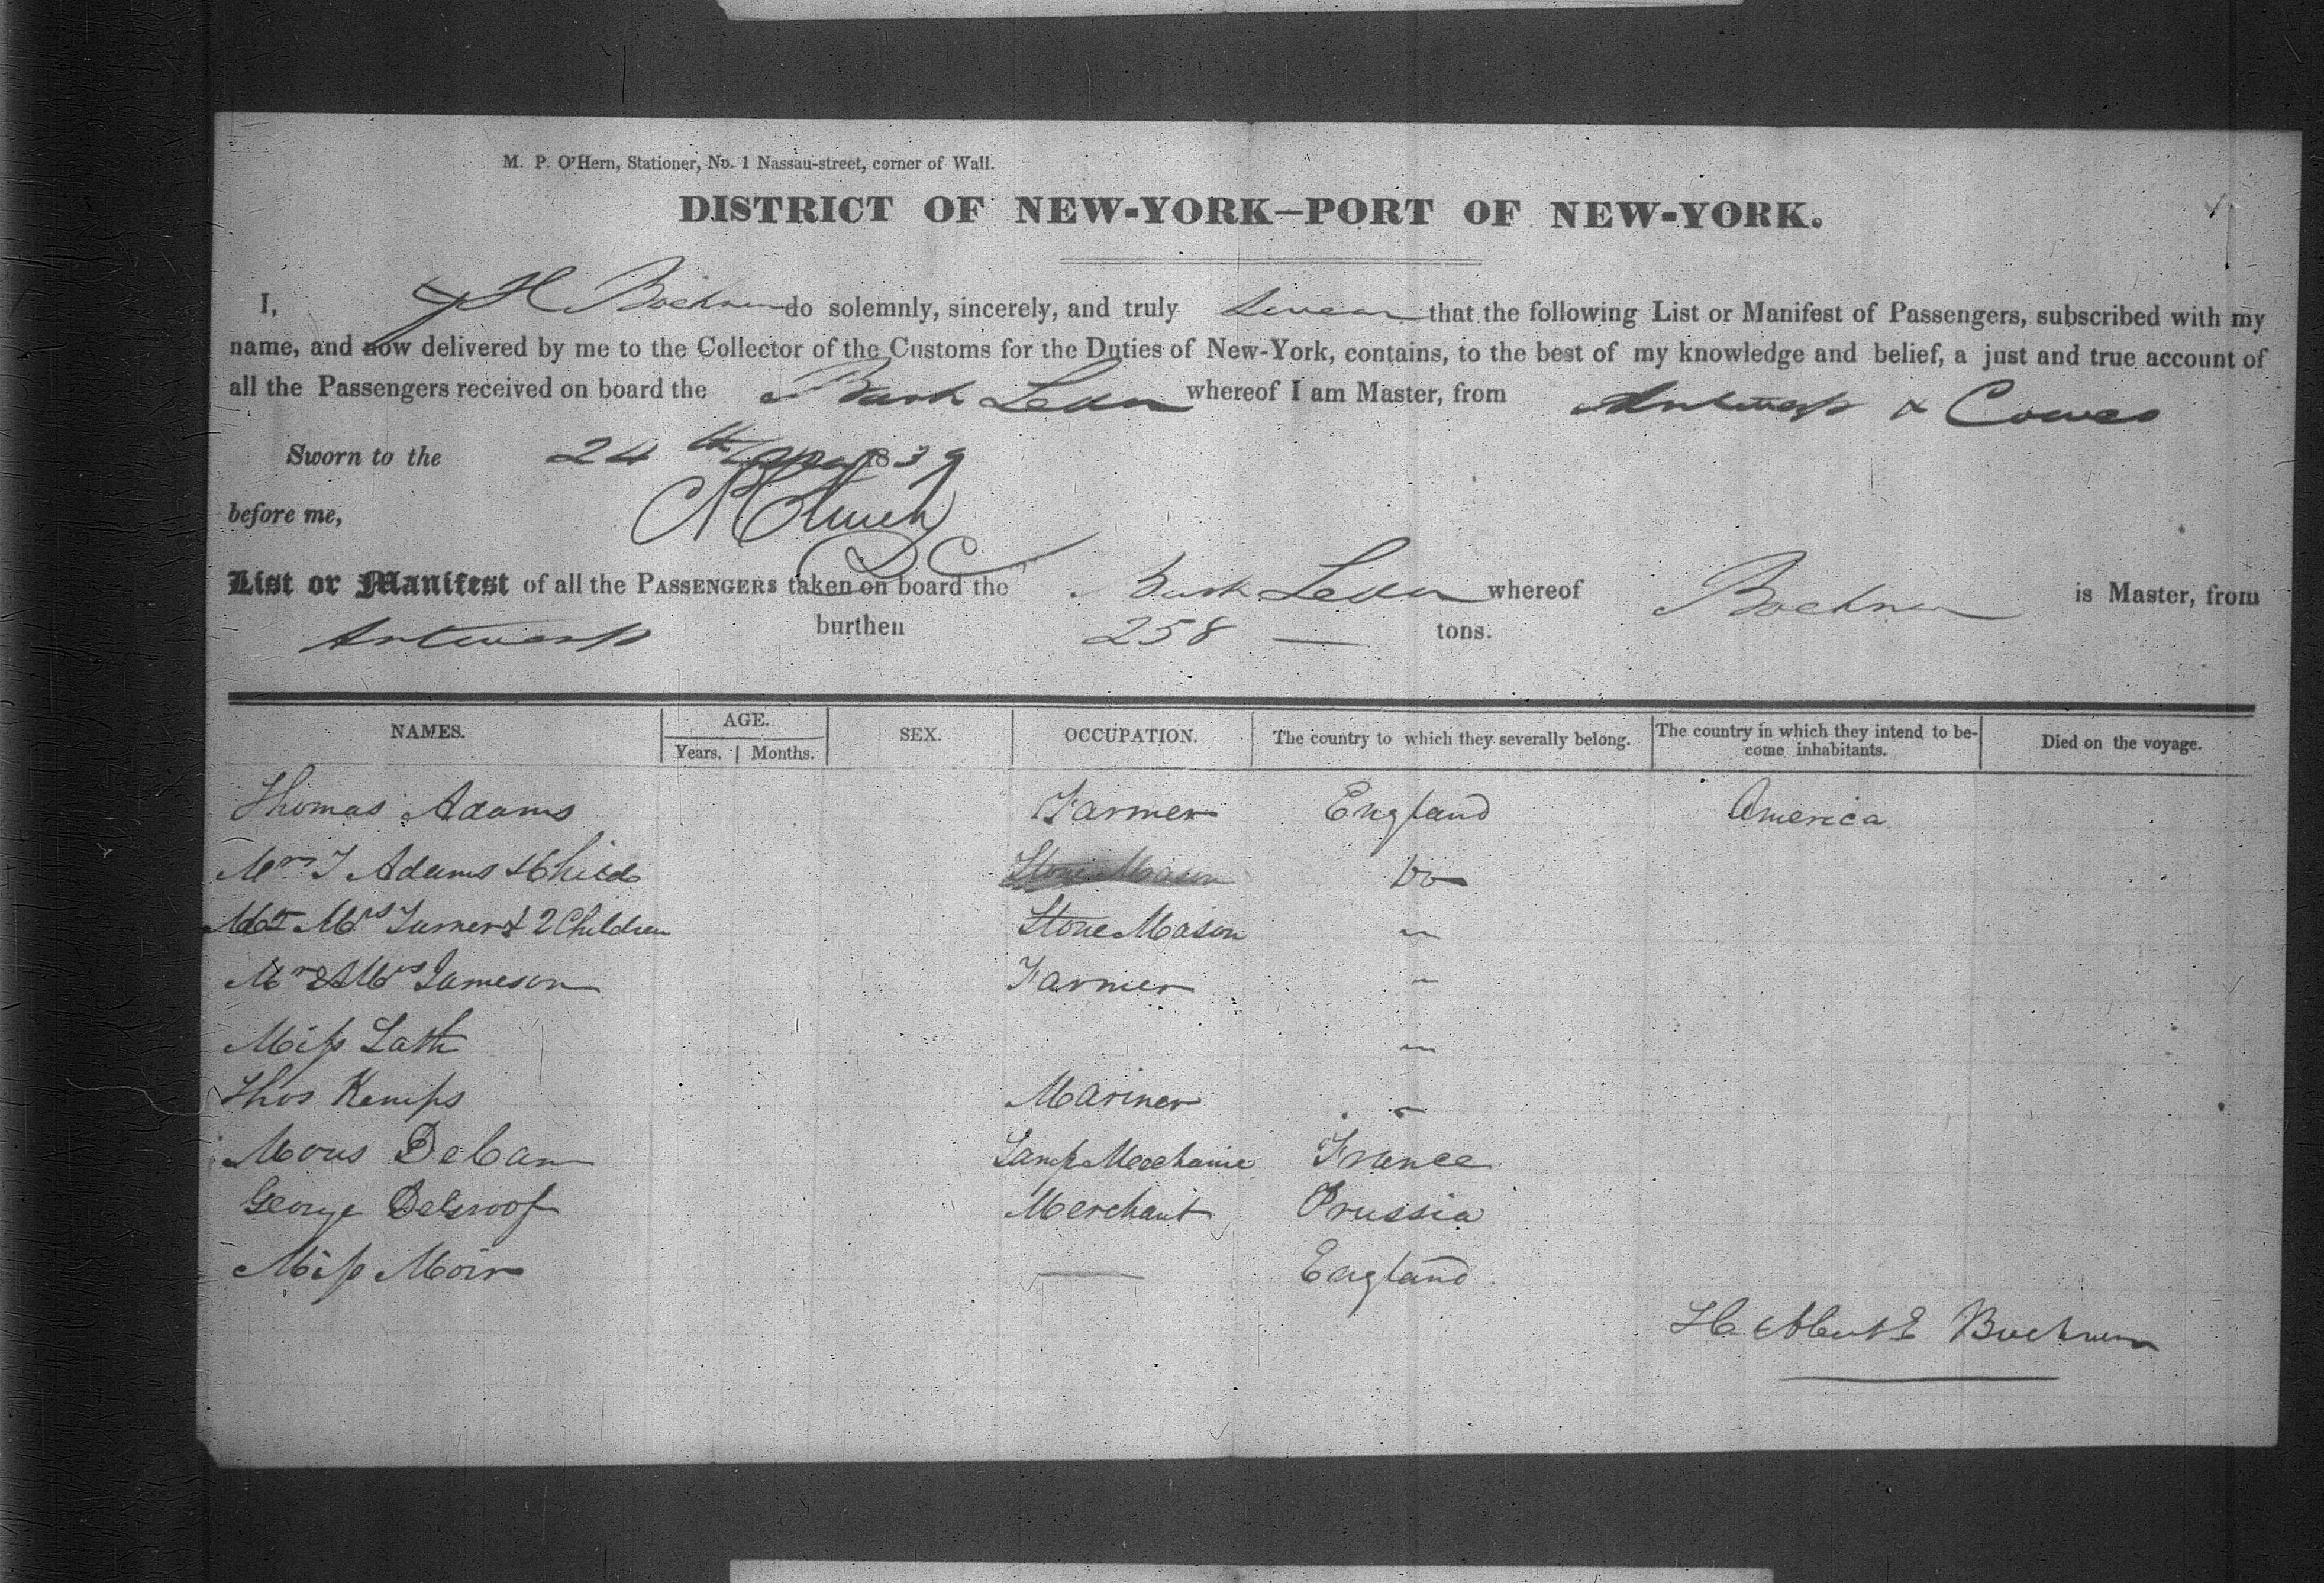 M. P. O'Hern, Stationer, No. 1 Nassau-street, corner of Wall.
DISTRICT OF NEW-YORK—PORT OF NEW-YORK.
I, H do solemnly, sincerely, and truly swear that the following List or Manifest of Passengers, subscribed with my
name, and now delivered by me to the Collector of the Customs for the Duties of New-York, contains, to the best of my knowledge and belief, a just and true account of
all the Passengers received on board the Bark whereof I am Master, from Antwerp & Cowes
Sworn to the 24th 1839
before me,
DC
List or Manifest of all the PASSENGERS taken on board the Bark whereof is Master, from
Antwerp burthen 258 — tons.
NAMES. AGE. SEX. OCCUPATION. The country to which they severally belong. The country in which they intend to be- Died on the voyage.
Years. Months. come inhabitants.
Thomas Adams Farmer England America
Mrs T Adams & Child Stone Mason Do
Mr & Mrs Turner & 2 Children Stone Mason "
Mr & Mrs Jameson Farmer "
Miss Lath "
Thos Kemps Mariner "
Mons DeCam Lamp Mechanic France
George Merchant Prussia
Miss Moir — England